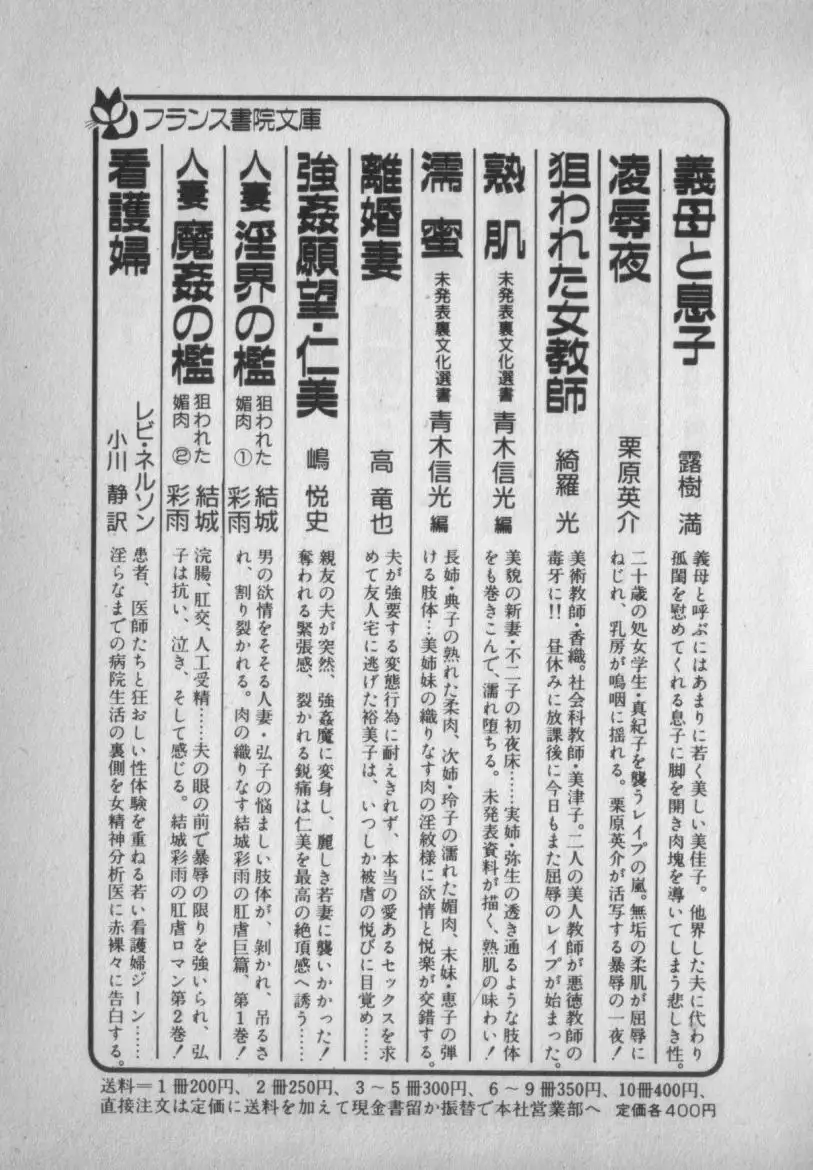 フランス書院文庫
義母と息子
露樹 満
義母と呼ぶにはあまりに若く美しい美佳子。他界した夫に代わり
孤閨を慰めてくれる息子に脚を開き肉塊を導いてしまう悲しき性。
凌辱夜
栗原英介
二十歳の処女学生・真紀子を襲うレイプの嵐。無垢の柔肌が屈辱に
ねじれ、乳房が嗚咽に揺れる。栗原英介が活写する暴辱の一夜!
狙われた女教師
綺羅 光
美術教師・香織。社会科教師・美津子。二人の美人教師が悪徳教師の
毒牙に!! 昼休みに放課後に今日もまた屈辱のレイプが始まった。
熟肌
未発表裏文化選書
青木信光 編
美貌の新妻・不二子の初夜床……実姉・弥生の透き通るような肢体
をも巻きこんで、濡れ堕ちる。未発表資料が描く、熟肌の味わい!
濡蜜
未発表裏文化選書
青木信光 編
長姉・典子の熟れた柔肉、次姉・玲子の濡れた媚肉、末妹・恵子の弾
ける肢体…美姉妹の織りなす肉の淫紋様に欲情と悦楽が交錯する。
離婚妻
高 竜也
夫が強要する変態行為に耐えきれず、本当の愛あるセックスを求
めて友人宅に逃げた裕美子は、いつしか被虐の悦びに目覚め……
強姦願望・仁美
嶋 悦史
親友の夫が突然、強姦魔に変身し、麗しき若妻に襲いかかった!
奪われる緊張感、裂かれる鋭痛は仁美を最高の絶頂感へ誘う……
人妻 淫界の檻
狙われた
媚肉 ①
結城
彩雨
男の欲情をそそる人妻・弘子の悩ましい肢体が、剝かれ、吊るさ
れ、割り裂かれる。肉の織りなす結城彩雨の肛虐巨篇、第1巻!
人妻 魔姦の檻
狙われた
媚肉 ②
結城
彩雨
浣腸、肛交、人工受精……夫の眼の前で暴辱の限りを強いられ、弘
子は抗い、泣き、そして感じる。結城彩雨の肛虐ロマン第2巻!
看護婦
レビ・ネルソン
小川 静訳
患者、医師たちと狂おしい性体験を重ねる若い看護婦ジーン……
淫らなまでの病院生活の裏側を女精神分析医に赤裸々に告白する。
送料=1冊200円、2冊250円、3~5冊300円、6~9冊350円、10冊400円、
直接注文は定価に送料を加えて現金書留か振替で本社営業部へ 定価各400円